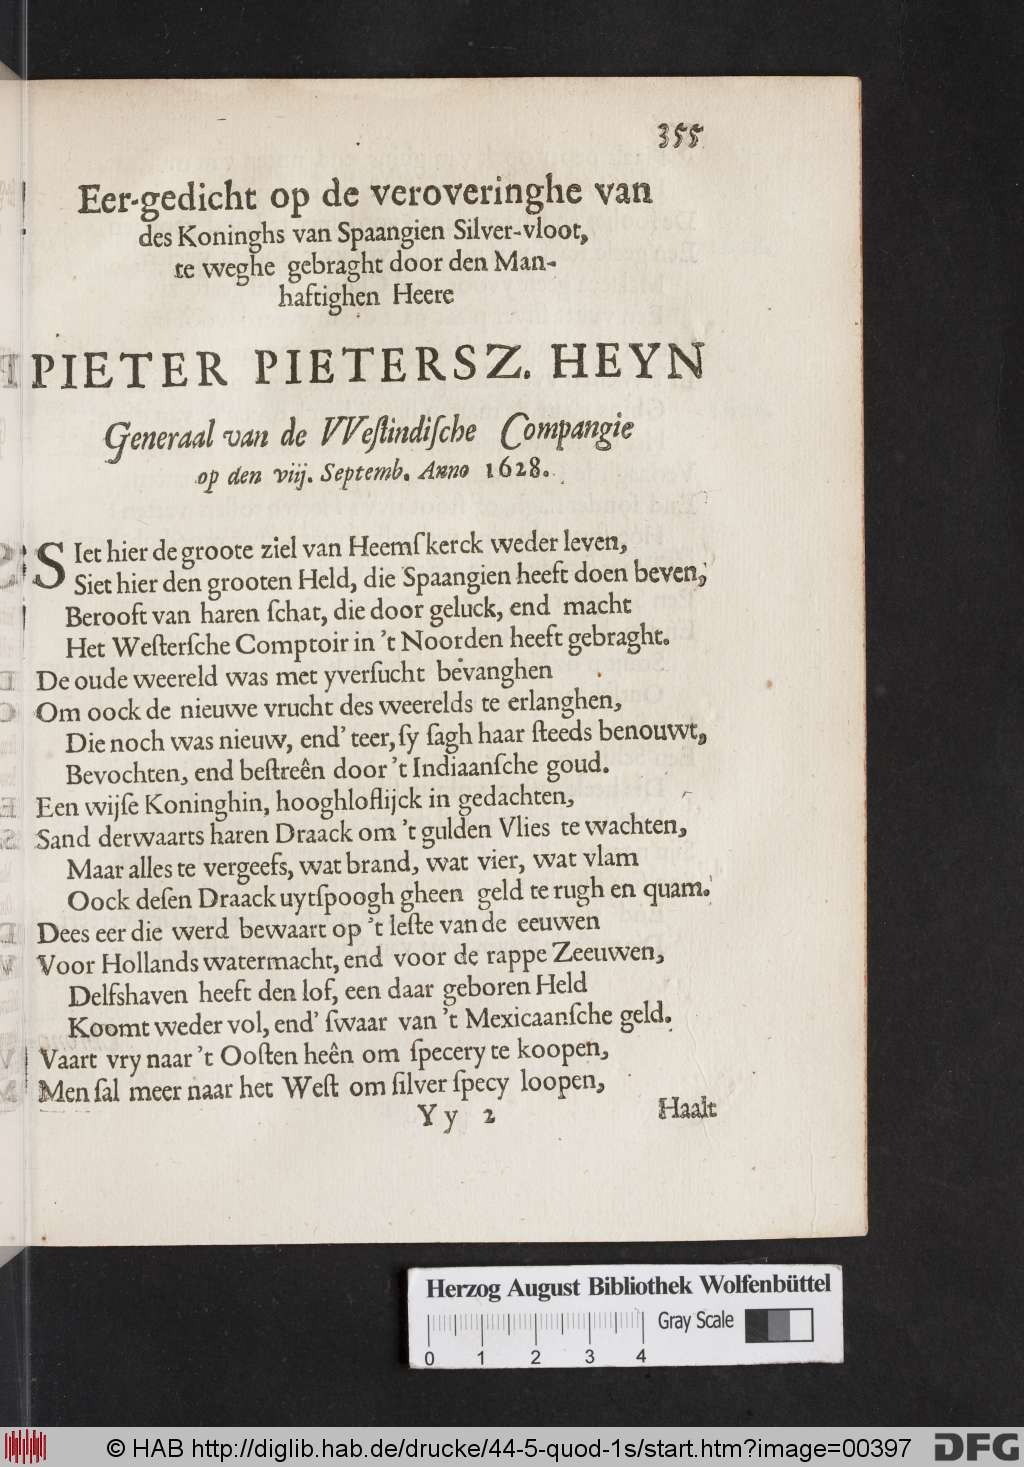 355
Eer-gedicht op de veroveringhe van
des Koninghs van Spaangien Silver-vloot,
te weghe gebraght door den Man-
haftighen Heere
PIETER PIETERSZ. HEYN
Generaal van de VVeſtindiſche Compangie
op den viij. Septemb. Anno 1628.
SIet hier de groote ziel van Heemſkerck weder leven,
Siet hier den grooten Held, die Spaangien heeft doen beven,
Berooft van haren ſchat, die door geluck, end macht
Het Weſterſche Comptoir in 't Noorden heeft gebraght.
De oude weereld was met yverſucht bevanghen
Om oock de nieuwe vrucht des weerelds te erlanghen,
Die noch was nieuw, end' teer, ſy ſagh haar ſteeds benouwt,
Bevochten, end beſtreên door 't Indiaanſche goud.
Een wijſe Koninghin, hooghloflijck in gedachten,
Sand derwaarts haren Draack om 't gulden Vlies te wachten,
Maar alles te vergeefs, wat brand, wat vier, wat vlam
Oock deſen Draack uytſpoogh gheen geld te rugh en quam.
Dees eer die werd bewaart op 't leſte van de eeuwen
Voor Hollands watermacht, end voor de rappe Zeeuwen,
Delfshaven heeft den lof, een daar geboren Held
Koomt weder vol, end' ſwaar van 't Mexicaanſche geld.
Vaart vry naar 't Ooſten heên om ſpecery te koopen,
Men ſal meer naar het Weſt om ſilver ſpecy loopen,
Yy 2 Haalt
Herzog August Bibliothek Wolfenbüttel
Gray Scale
0 1 2 3 4
© HAB http://diglib.hab.de/drucke/44-5-quod-1s/start.htm?image=00397 DFG